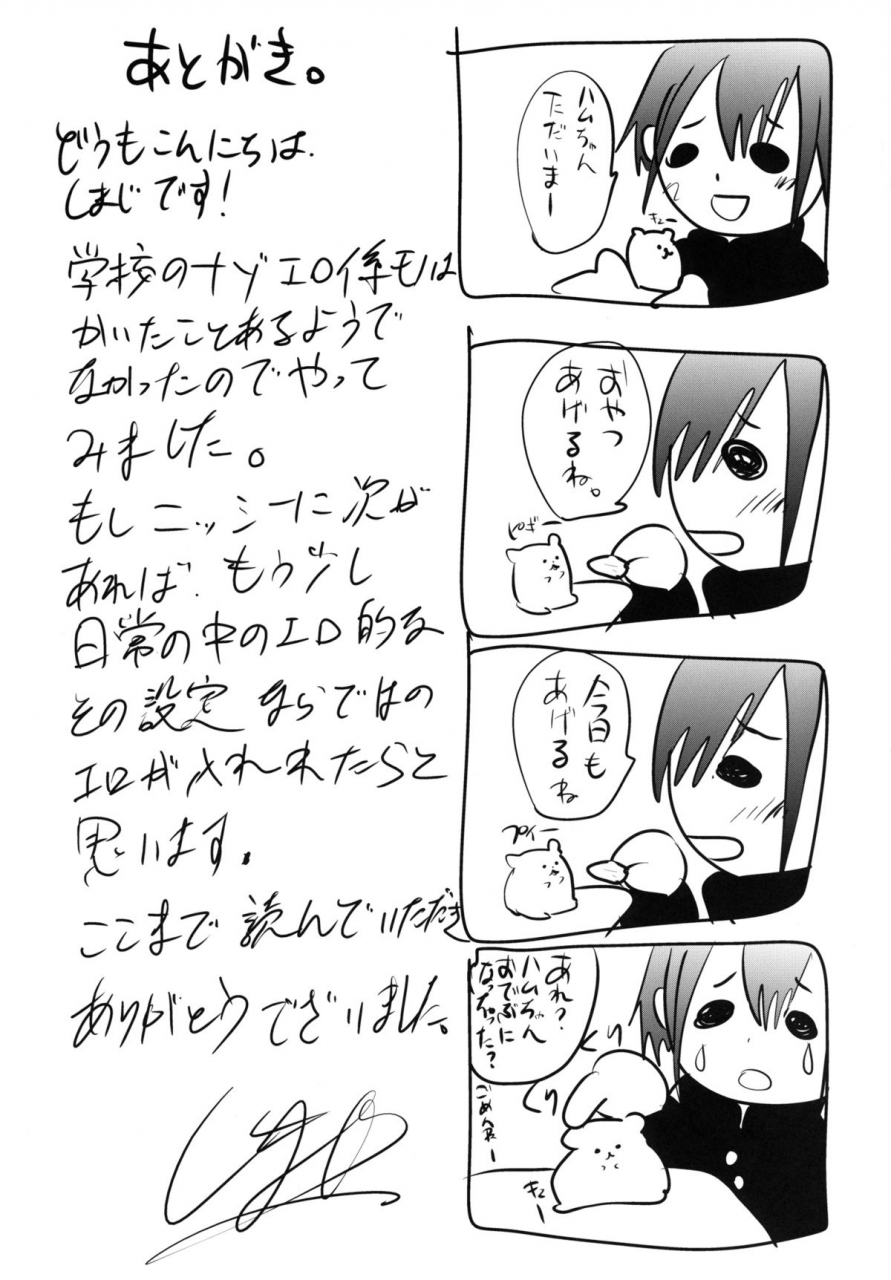 あとがき。
どうもこんにちは.
しまじです!
学校のナゾエロ係モノは
かいたことあるようで
なかったのでやって
みました。
もしニッシーに次が
あれば.もう少し
日常の中のエロ的な
その設定ならではの
エロが入れれたらと
思います。
ここまで読んでいただき
ありがとうございました。
ハムちゃん
ただいまー
キュー
おやつ
あげるね。
ピギー
今日も
あげるね
プイー
あれっ?
ハムちゃん
おでぶに
なっちゃった?
ぐり
ぐり
ごめんねー
キュー